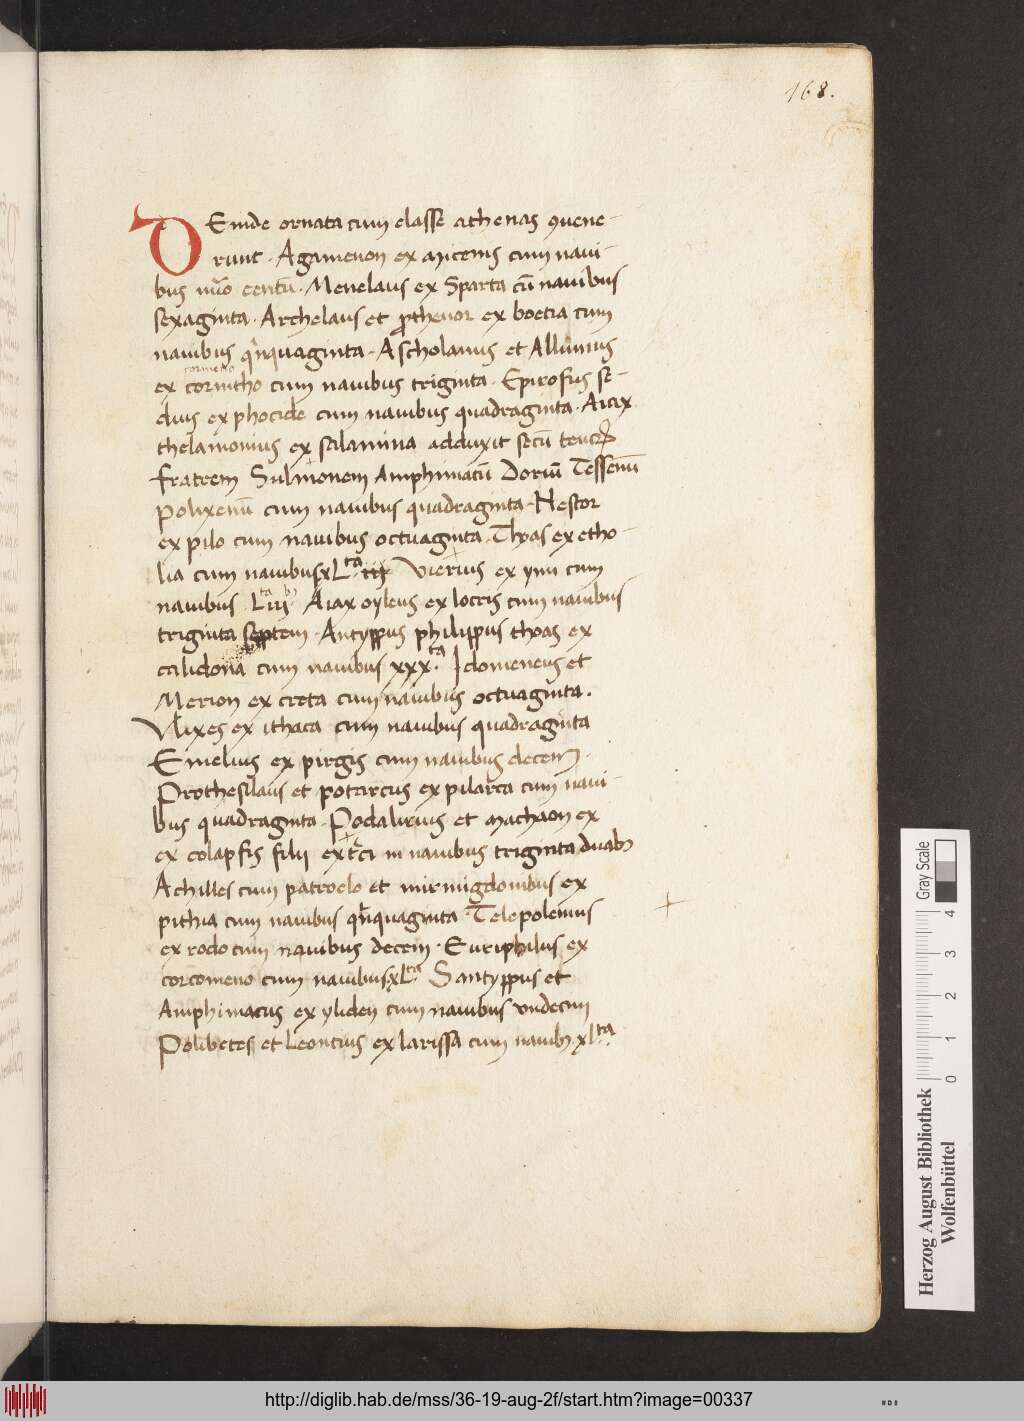 168.
DEinde ornata cum classe athenas ꝯuene-
runt. Agamenon ex micenis cum naui-
bus nũo centũ. Menelaus ex Sparta cũ nauibus
sexaginta. Archelaus et ꝓthenor ex boetia cum
nauibus qͥnquaginta. Ascholamus et Allimius
cormeno
ex corintho cum nauibus triginta. Epirofus se-
dius ex phocide cum nauibus quadraginta. Aiax
thelamonius ex salamina adduxit secũ
fratrem Sulmonem Amphimacũ Doriũ Tessenũ
polixenũ cum nauibus quadraginta. Nestor
ex pilo cum nauibus octuaginta. Thoas ex etho-
lia cum nauibus xLta. Vierius ex ymi cum
nauibus Aiax oyleus ex locris cum nauibus
triginta septem. Antyppus philippus thoas ex
calidona cum nauibus xxxta. Idomeneus et
Merion ex creta cum nauibus octuaginta.
Vlixes ex ithaca cum nauibus quadraginta
Emelius ex pirgis cum nauibus decem.
Prothesilaus et potarcus ex pilarca cum naui-
bus quadraginta. Podalirius et machaon ex
ex colapfis filij in nauibus triginta duabꝫ
Achilles cum patroclo et mirmigdonibus ex
pithia cum nauibus qͥnquaginta. Telepolemus
ex rodo cum nauibus decem. Euriphilus ex
corcomeno cum nauibus xLta. Santyppus et
Amphimacus ex yliden cum nauibus vndecim
Polibetes et Leontius ex larissa cum nauibꝫ xlta.
Gray Scale
0 1 2 3 4
Herzog August Bibliothek
Wolfenbüttel
http://diglib.hab.de/mss/36-19-aug-2f/start.htm?image=00337